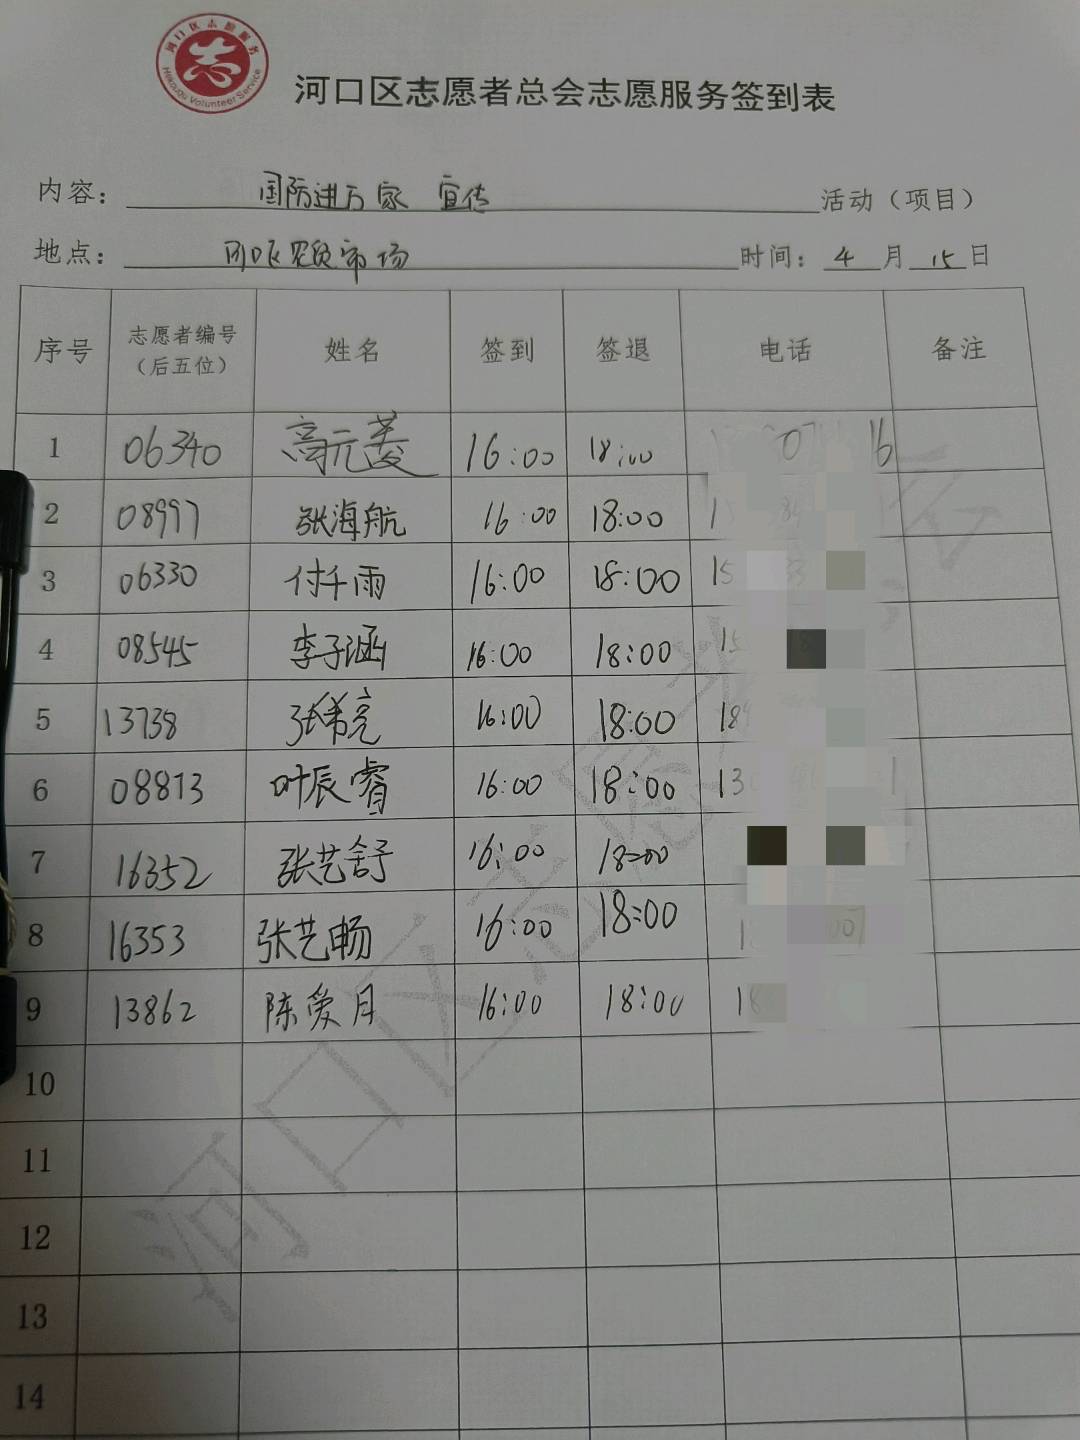 河口区志愿服务
Hekouqu Volunteer Service
河口区志愿者总会志愿服务签到表
内容： 国防进万家 宣传 活动（项目）
地点： 河口区农贸市场 时间： 4 月 15 日
序号 志愿者编号（后五位） 姓名 签到 签退 电话 备注
1 06340 高元菱 16:00 18:00
2 08997 张海航 16:00 18:00
3 06330 付千雨 16:00 18:00
4 08545 李子涵 16:00 18:00
5 13738 张希亮 16:00 18:00
6 08813 叶辰睿 16:00 18:00
7 16352 张艺舒 16:00 18:00
8 16353 张艺畅 16:00 18:00
9 13862 陈爱月 16:00 18:00
10
11
12
13
14